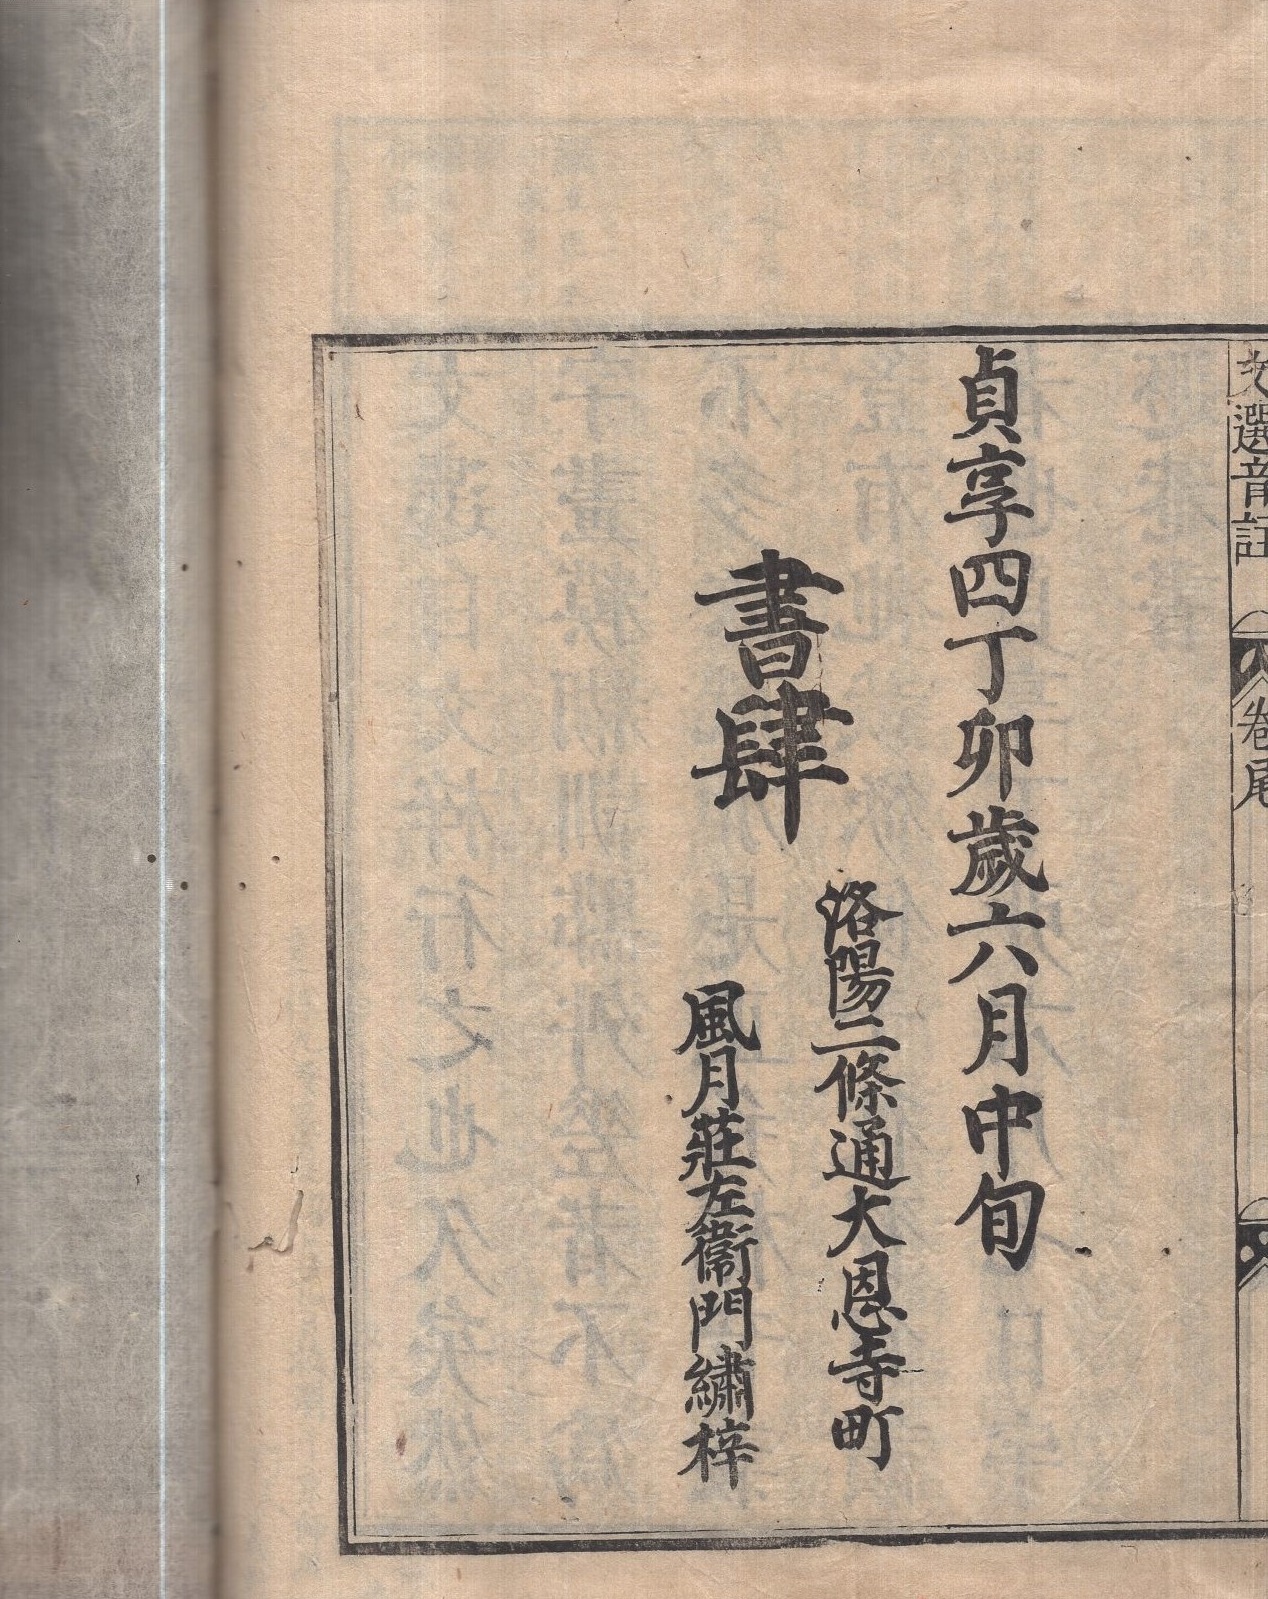 文選音註 卷尾
貞享四丁卯歲六月中旬
書肆
洛陽二條通大恩寺町
風月莊左衞門繡梓